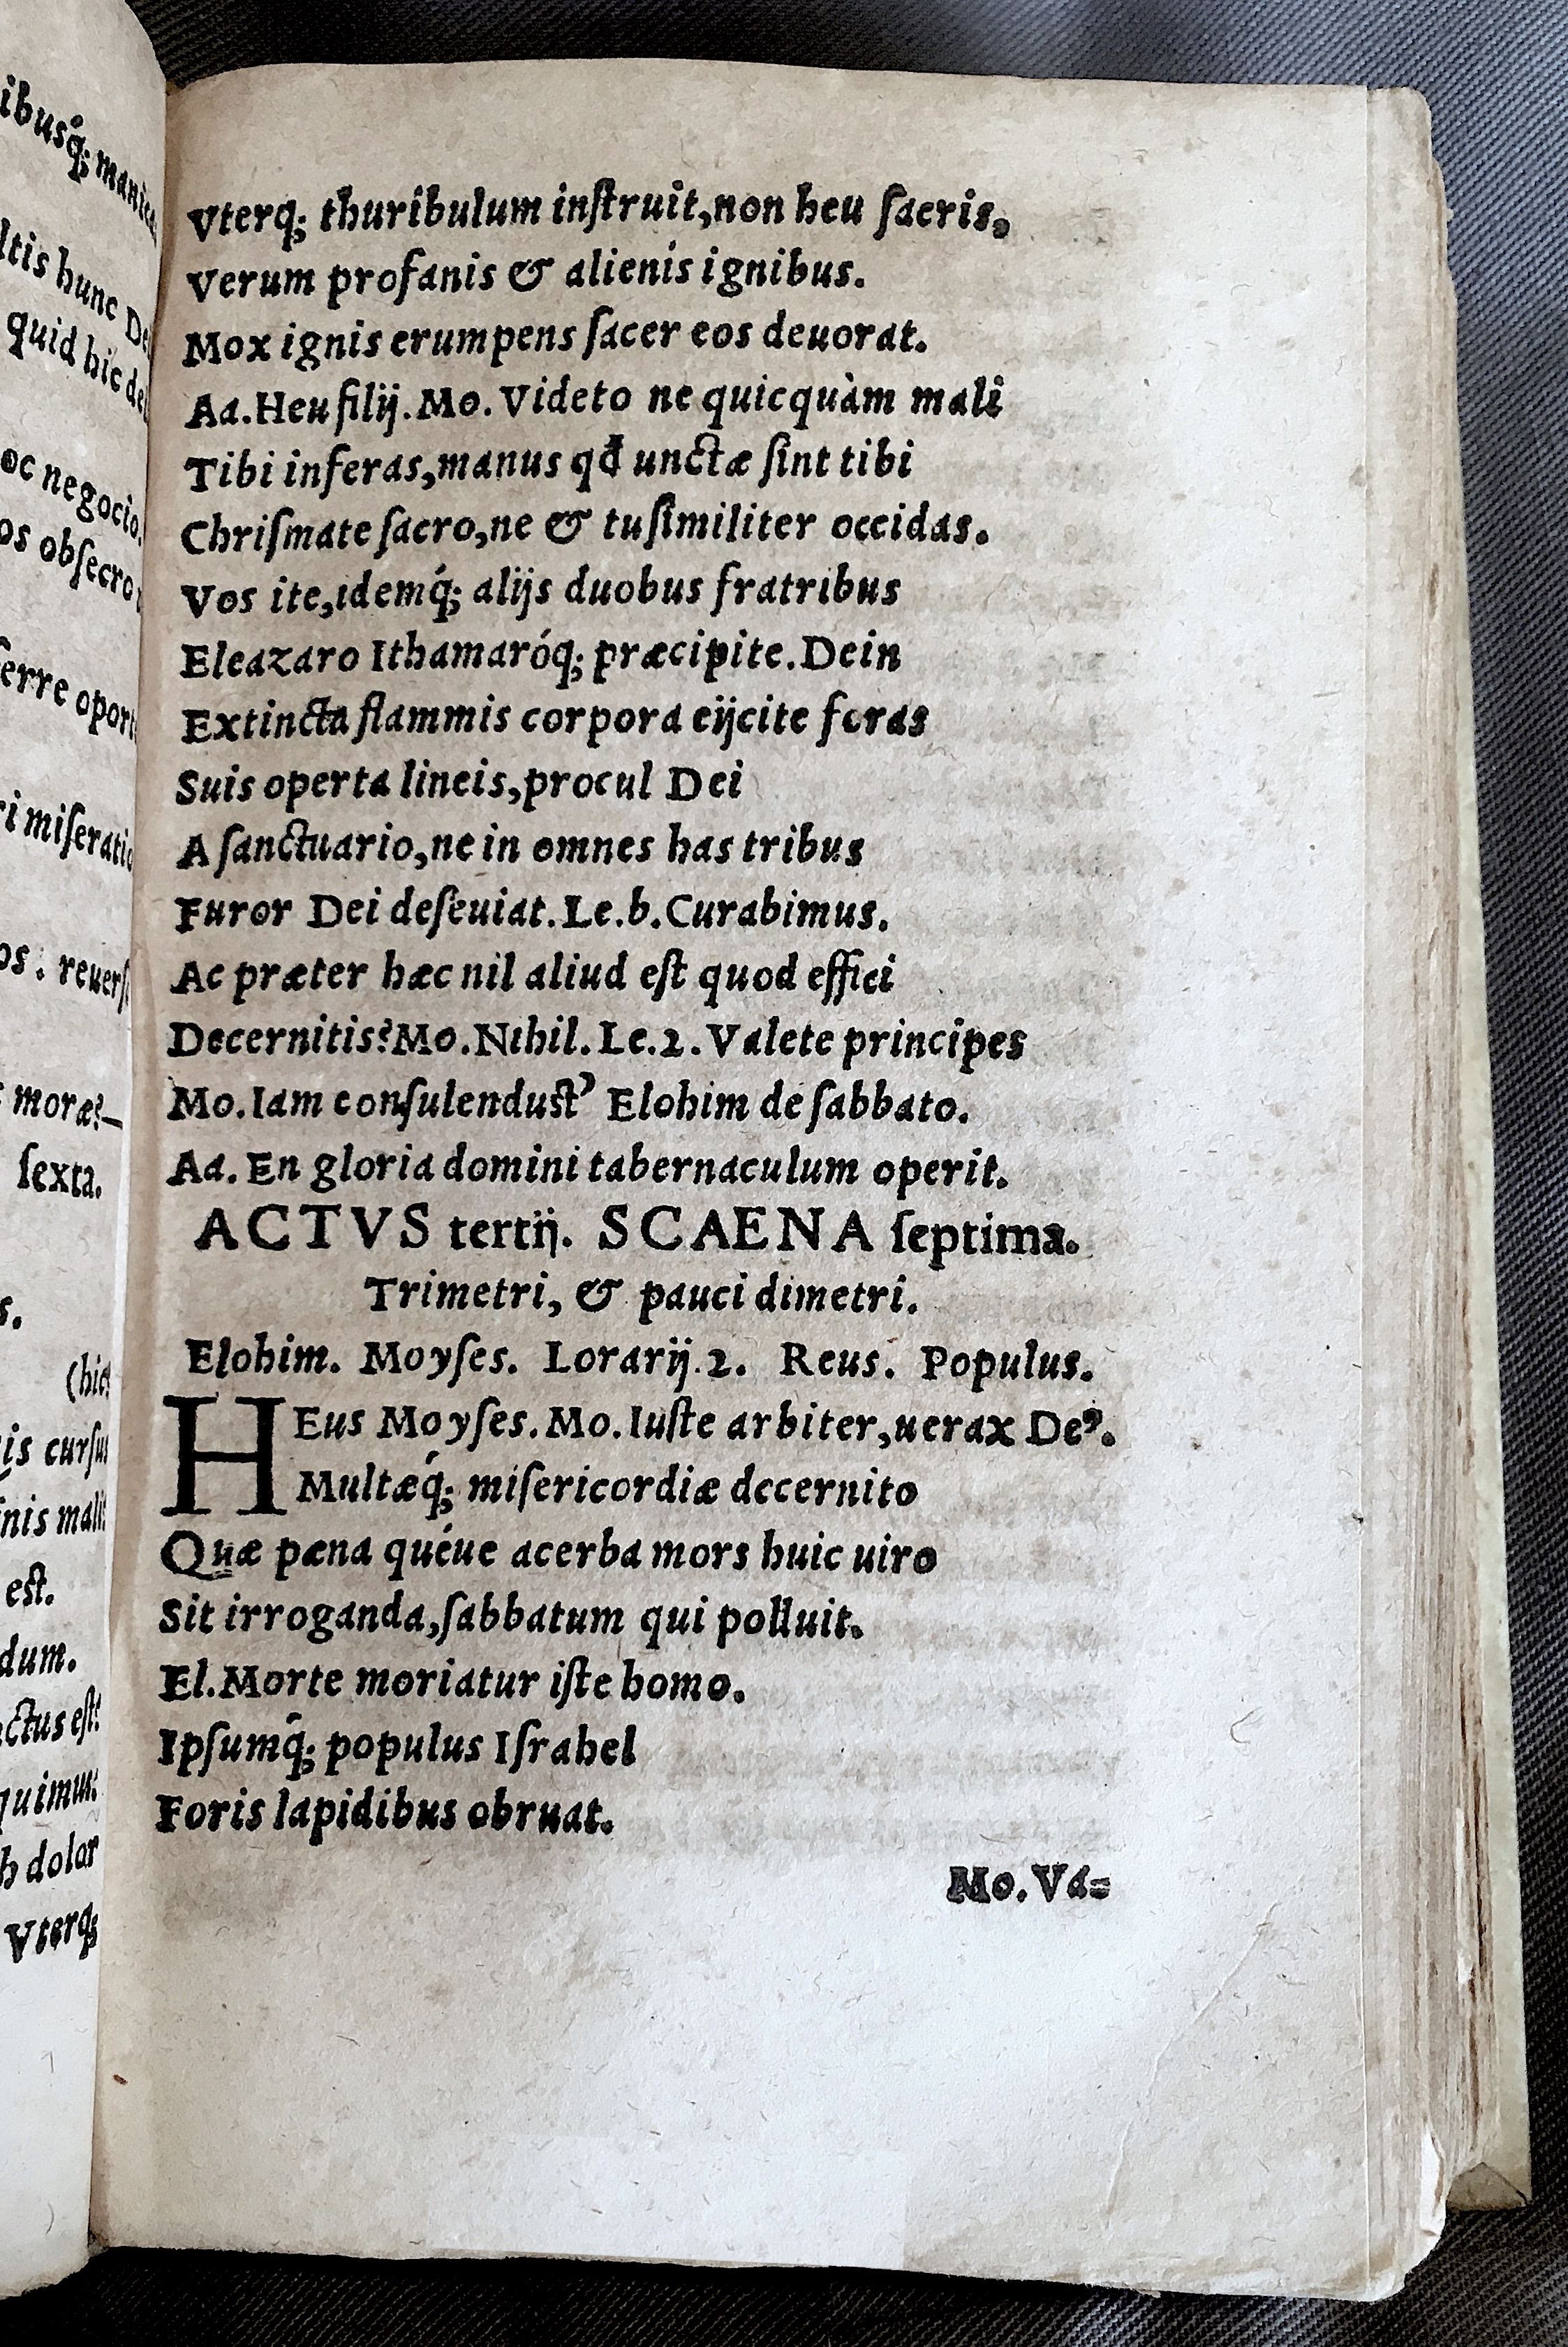 ibusq́;
ltis hunc
quid hic
oc negocio.
os obſecro
erre
moræ?—
ſexta.
(hic
nis
est.
dum.
ctus eſt:
quimus:
h dolor
Vterq;
Vterq; thuribulum inſtruit,non heu ſacris,
Verum profanis & alienis ignibus.
Mox ignis erumpens ſacer eos deuorat.
Aa.Heu filij.Mo.Videto ne quicquàm mali
Tibi inferas,manus qđ unctæ ſint tibi
Chriſmate ſacro,ne & tu ſimiliter occidas.
Vos ite,idemq́; alijs duobus fratribus
Eleazaro Ithamaróq; præcipite.Dein
Extincta flammis corpora eijcite foras
Suis operta lineis,procul Dei
A ſanctuario,ne in omnes has tribus
Furor Dei deſeuiat.Le.b.Curabimus.
Ac præter hæc nil aliud eſt quod effici
Decernitis?Mo.Nihil.Le.2.Valete principes
Mo.Iam conſulendust’ Elohim de ſabbato.
Aa.En gloria domini tabernaculum operit.
ACTVS tertij. SCAENA ſeptima.
Trimetri, & pauci dimetri.
Elohim. Moyſes. Lorarij.2. Reus. Populus.
HEus Moyſes.Mo.Iuſte arbiter,uerax Deꝰ.
Multæq́; miſericordiæ decernito
Quæ pæna quéue acerba mors huic uiro
Sit irroganda,ſabbatum qui polluit.
El.Morte moriatur iſte homo.
Ipſumq́; populus Iſrahel
Foris lapidibus obruat.
Mo.Va=